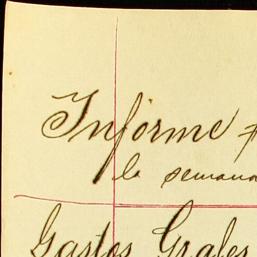 Informe
la semana
Gastos Grales